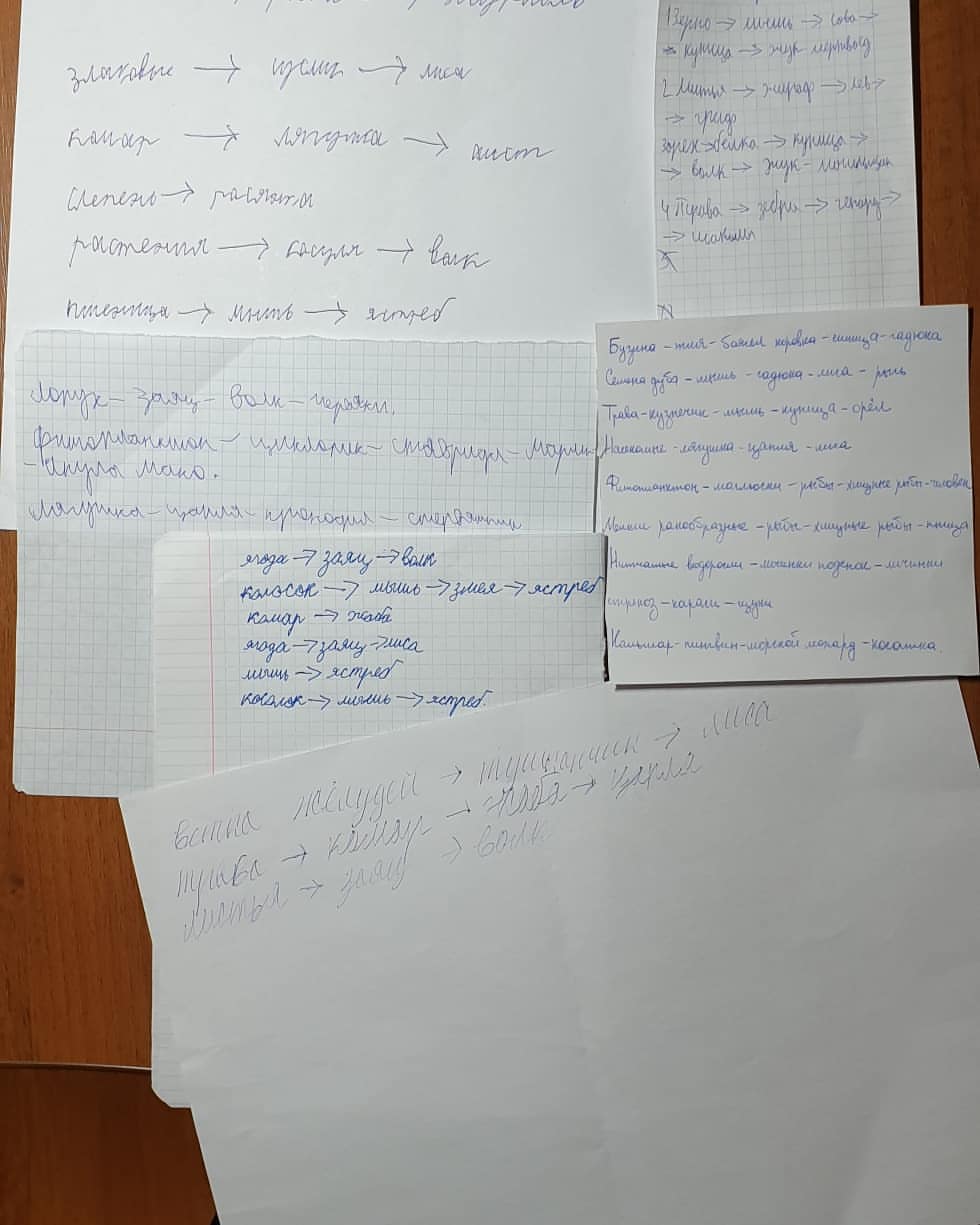 злаковые → суслик → лиса
комар → лягушка → аист
слепень → росянка
растения → косуля → волк
пшеница → мышь → ястреб
1 Зерно → мышь → сова →
→ куница → жук мертвоед
2 Листья → жираф → лев →
→ гриф
3 орех → белка → куница →
→ волк → жук-могильщик
4 Трава → зебра → гепард →
→ шакалы
5
Лопух - заяц - волк - червяки.
Фитопланктон - циклопик - ставрида - марлин
- акулы мако.
Лягушка - цапля - крокодил -
Бузина - тля - божья коровка - синица - гадюка
Семена дуба - мышь - гадюка - лиса - рысь
Трава - кузнечик - мышь - куница - орёл
Насекомые - лягушка - цапля - лиса
Фитопланктон - моллюски - рыбы - хищные рыбы - человек
Мелкие ракообразные - рыбы - хищные рыбы - птица
Нитчатые водоросли - личинки поденок - личинки
стрекоз - караси - щуки
Кальмар - пингвин - морской леопард - косатка.
ягода → заяц → волк
колосок → мышь → змея → ястреб
комар → жаба
ягода → заяц → лиса
мышь → ястреб
косолок → мышь → ястреб.
ветка желудей → тушканчик → лиса
трава → комар → жаба → цапля
листья → заяц → волк